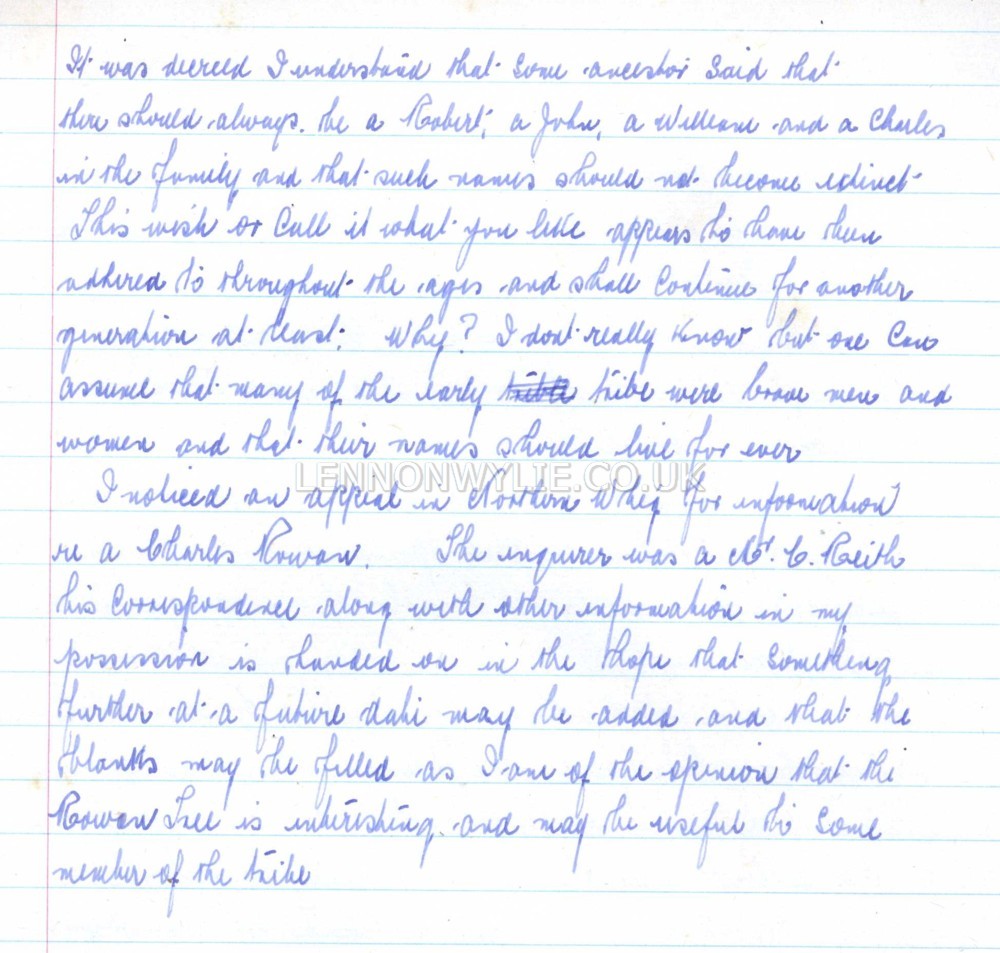 It was decreed I understand that some ancestor said that
there should always be a Robert, a John, a William and a Charles
in the family and that such names should not become extinct
This wish or call it what you like appears to have been
adhered to throughout the ages and shall continue for another
generation at least. Why? I dont really know but one can
assume that many of the early tribe tribe were brave men and
women and that their names should live for ever
LENNONWYLIE.CO.UK
I noticed an appeal in Northern Whig "for information"
re a Charles Rowan. The enquirer was a Mr. C. Reith
his correspondence along with other information in my
possession is handed on in the hope that something
further at a future date may be added and that the
blanks may be filled as I am of the opinion that the
Rowan Tree is interesting and may be useful to some
member of the tribe